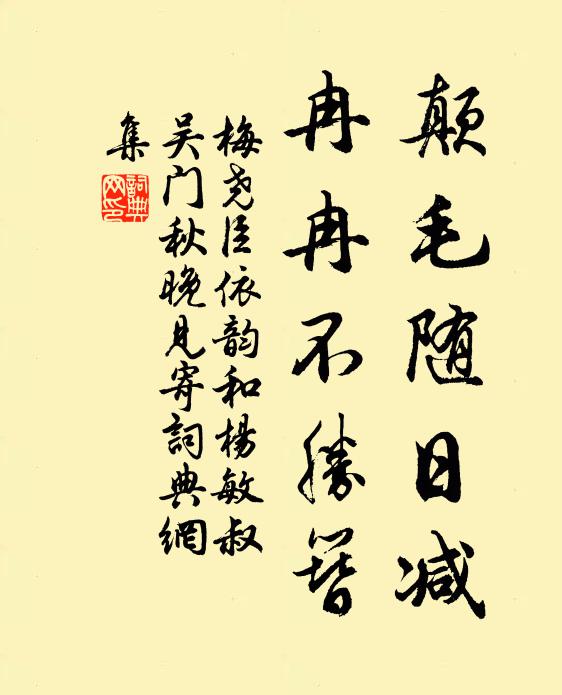 颠毛随日减
冉冉不勝簪
梅尧臣依韵和杨敏叔
吴门秋晚见寄詞典網
集
詞典
网印